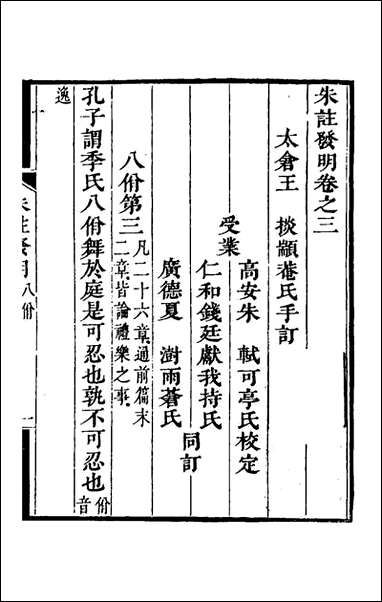 朱註發明卷之三
太倉王　掞顓菴氏手訂
受業
高安朱　軾可亭氏校定
仁和錢廷獻我持氏
廣德夏　澍雨蒼氏
同訂
八佾第三凡二十六章通前篇末二章皆論禮樂之事
孔子謂季氏八佾舞於庭是可忍也孰不可忍也佾音
逸
朱註發明　八佾　一